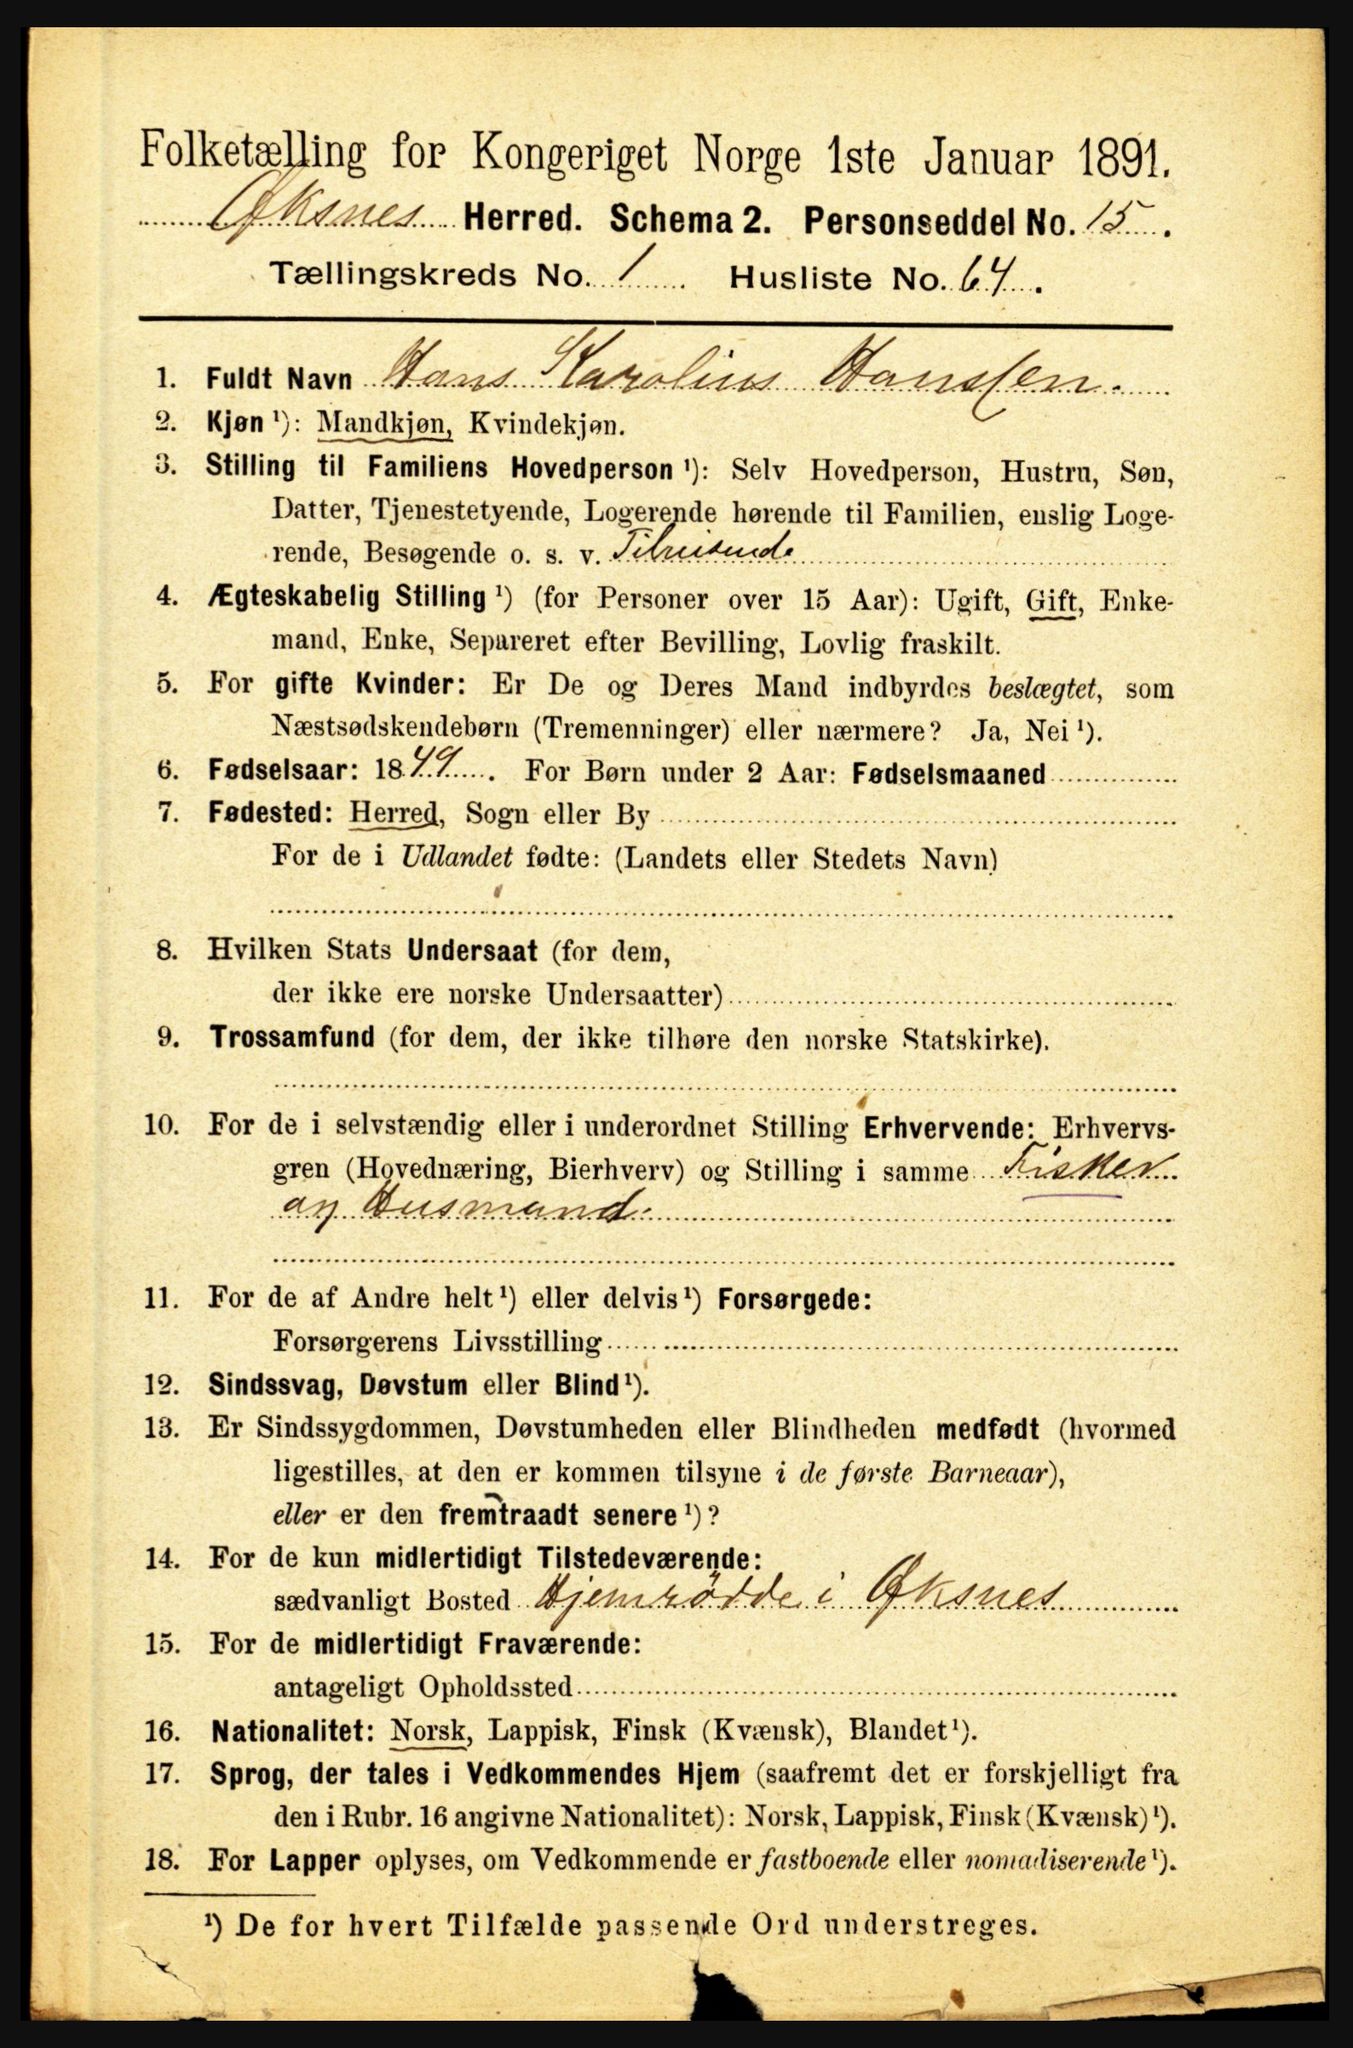 Folketælling for Kongeriget Norge 1ste Januar 1891.
Øksnes Herred. Schema 2. Personseddel No. 15.
Tællingskreds No. 1 Husliste No. 64.
1. Fuldt Navn Hans Karolius Hanssen.
2. Kjøn ¹): Mandkjøn, Kvindekjøn.
3. Stilling til Familiens Hovedperson ¹): Selv Hovedperson, Hustru, Søn,
Datter, Tjenestetyende, Logerende hørende til Familien, enslig Loge-
rende, Besøgende o. s. v. Tilreisende
4. Ægteskabelig Stilling ¹) (for Personer over 15 Aar): Ugift, Gift, Enke-
mand, Enke, Separeret efter Bevilling, Lovlig fraskilt.
5. For gifte Kvinder: Er De og Deres Mand indbyrdes beslægtet, som
Næstsødskendebørn (Tremenninger) eller nærmere? Ja, Nei ¹).
6. Fødselsaar: 1849. For Børn under 2 Aar: Fødselsmaaned
7. Fødested: Herred, Sogn eller By
For de i Udlandet fødte: (Landets eller Stedets Navn)
8. Hvilken Stats Undersaat (for dem,
der ikke ere norske Undersaatter)
9. Trossamfund (for dem, der ikke tilhøre den norske Statskirke).
10. For de i selvstændig eller i underordnet Stilling Erhvervende: Erhvervs-
gren (Hovednæring, Bierhverv) og Stilling i samme Fisker
og Husmand.
11. For de af Andre helt ¹) eller delvis ¹) Forsørgede:
Forsørgerens Livsstilling
12. Sindssvag, Døvstum eller Blind ¹).
13. Er Sindssygdommen, Døvstumheden eller Blindheden medfødt (hvormed
ligestilles, at den er kommen tilsyne i de første Barneaar),
eller er den fremtraadt senere ¹)?
14. For de kun midlertidigt Tilstedeværende:
sædvanligt Bosted i Øksnes
15. For de midlertidigt Fraværende:
antageligt Opholdssted
16. Nationalitet: Norsk, Lappisk, Finsk (Kvænsk), Blandet ¹).
17. Sprog, der tales i Vedkommendes Hjem (saafremt det er forskjelligt fra
den i Rubr. 16 angivne Nationalitet): Norsk, Lappisk, Finsk (Kvænsk) ¹).
18. For Lapper oplyses, om Vedkommende er fastboende eller nomadiserende ¹).
¹) De for hvert Tilfælde passende Ord understreges.